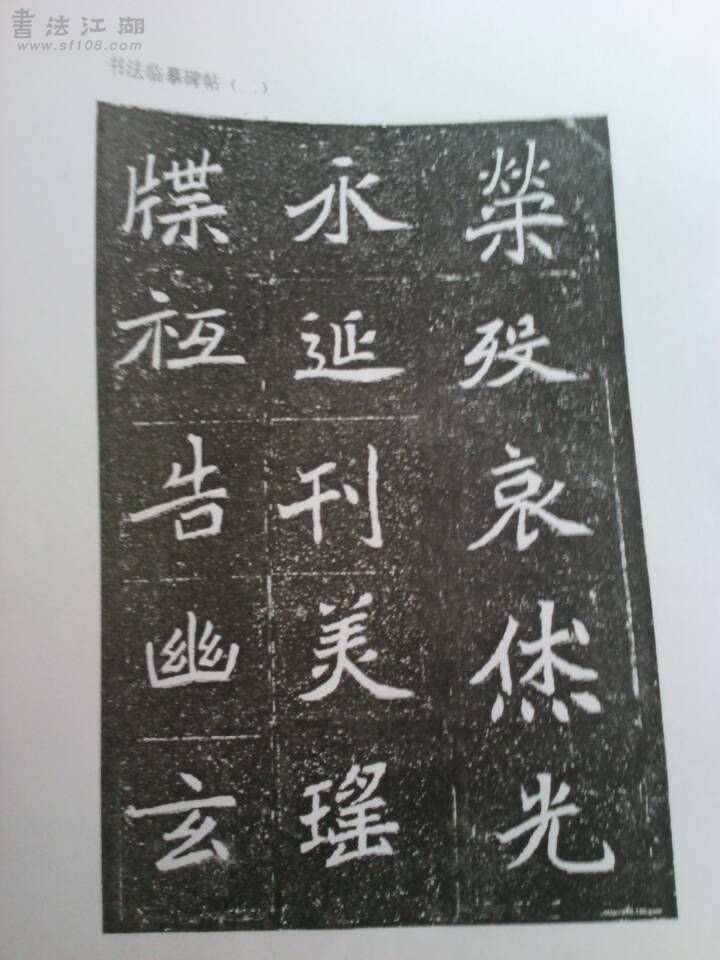 書法江湖
www.sf108.com
书法临摹碑帖（二）
榮殁哀烋光
永延刊美瑤
牒祗告幽玄